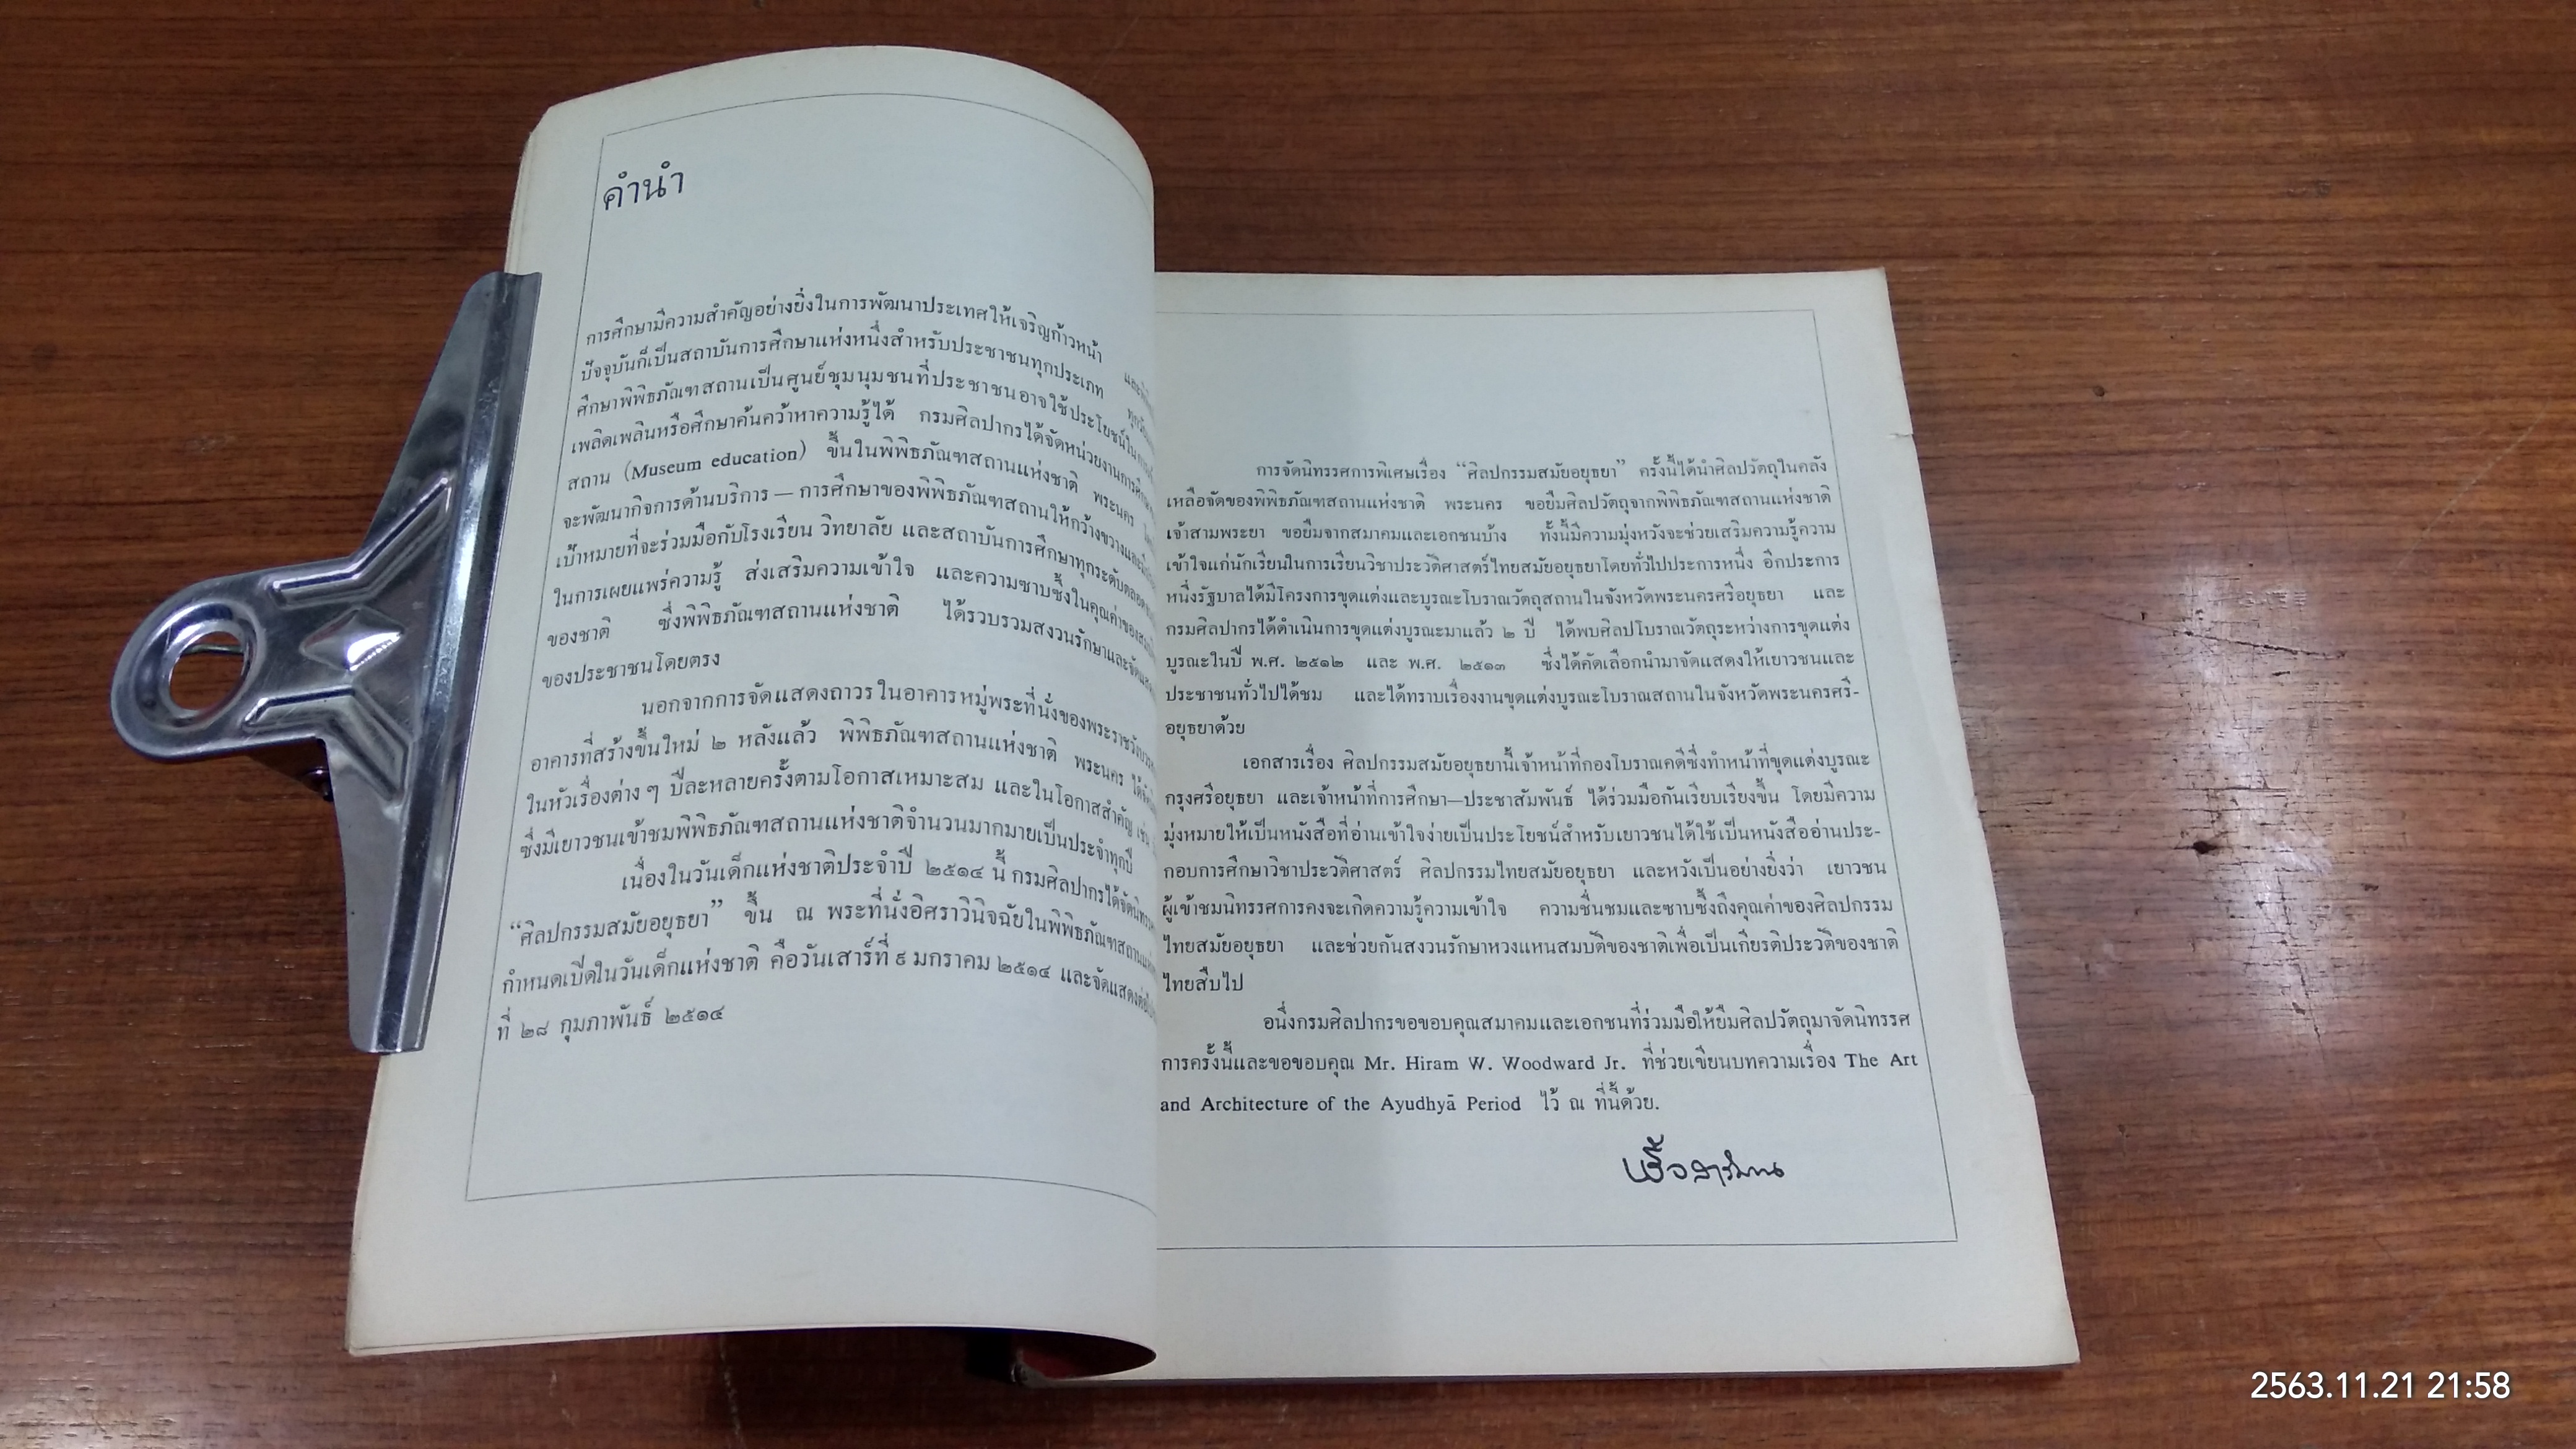 คำนำ
การศึกษามีความสำคัญอย่างยิ่งในการพัฒนาประเทศให้เจริญก้าวหน้า
ปัจจุบันก็เป็นสถาบันการศึกษาแห่งหนึ่งสำหรับประชาชนทุกประเภท
ศึกษาพิพิธภัณฑสถานเป็นศูนย์ชุมนุมชนที่ประชาชนอาจใช้ประโยชน์ใน
เพลิดเพลินหรือศึกษาค้นคว้าหาความรู้ได้ กรมศิลปากรได้จัดหน่วยงานการศึกษา
สถาน (Museum education) ขึ้นในพิพิธภัณฑสถานแห่งชาติ พระนคร
จะพัฒนากิจการด้านบริการ — การศึกษาของพิพิธภัณฑสถานให้กว้างขวางและ
เป้าหมายที่จะร่วมมือกับโรงเรียน วิทยาลัย และสถาบันการศึกษาทุกระดับตลอด
ในการเผยแพร่ความรู้ ส่งเสริมความเข้าใจ และความซาบซึ้งในคุณค่าของ
ของชาติ ซึ่งพิพิธภัณฑสถานแห่งชาติ ได้รวบรวมสงวนรักษาและจัดแสดง
ของประชาชนโดยตรง
นอกจากการจัดแสดงถาวรในอาคารหมู่พระที่นั่งของพระราชวังบวร
อาคารที่สร้างขึ้นใหม่ ๒ หลังแล้ว พิพิธภัณฑสถานแห่งชาติ พระนคร ได้จัด
ในหัวเรื่องต่าง ๆ ปีละหลายครั้งตามโอกาสเหมาะสม และในโอกาสสำคัญ เช่น
ซึ่งมีเยาวชนเข้าชมพิพิธภัณฑสถานแห่งชาติจำนวนมากมายเป็นประจำทุกปี
เนื่องในวันเด็กแห่งชาติประจำปี ๒๕๑๔ นี้ กรมศิลปากรได้จัดนิทรรศ
“ศิลปกรรมสมัยอยุธยา” ขึ้น ณ พระที่นั่งอิศราวินิจฉัยในพิพิธภัณฑสถานแห่ง
กำหนดเปิดในวันเด็กแห่งชาติ คือวันเสาร์ที่ ๙ มกราคม ๒๕๑๔ และจัดแสดง
ที่ ๒๘ กุมภาพันธ์ ๒๕๑๔
การจัดนิทรรศการพิเศษเรื่อง “ศิลปกรรมสมัยอยุธยา” ครั้งนี้ได้นำศิลปวัตถุในคลัง
เหลือจัดของพิพิธภัณฑสถานแห่งชาติ พระนคร ขอยืมศิลปวัตถุจากพิพิธภัณฑสถานแห่งชาติ
เจ้าสามพระยา ขอยืมจากสมาคมและเอกชนบ้าง ทั้งนี้มีความมุ่งหวังจะช่วยเสริมความรู้ความ
เข้าใจแก่นักเรียนในการเรียนวิชาประวัติศาสตร์ไทยสมัยอยุธยาโดยทั่วไปประการหนึ่ง อีกประการ
หนึ่งรัฐบาลได้มีโครงการขุดแต่งและบูรณะโบราณวัตถุสถานในจังหวัดพระนครศรีอยุธยา และ
กรมศิลปากรได้ดำเนินการขุดแต่งบูรณะมาแล้ว ๒ ปี ได้พบศิลปโบราณวัตถุระหว่างการขุดแต่ง
บูรณะในปี พ.ศ. ๒๕๑๒ และ พ.ศ. ๒๕๑๓ ซึ่งได้คัดเลือกนำมาจัดแสดงให้เยาวชนและ
ประชาชนทั่วไปได้ชม และได้ทราบเรื่องงานขุดแต่งบูรณะโบราณสถานในจังหวัดพระนครศรี-
อยุธยาด้วย
เอกสารเรื่อง ศิลปกรรมสมัยอยุธยานี้เจ้าหน้าที่กองโบราณคดีซึ่งทำหน้าที่ขุดแต่งบูรณะ
กรุงศรีอยุธยา และเจ้าหน้าที่การศึกษา—ประชาสัมพันธ์ ได้ร่วมมือกันเรียบเรียงขึ้น โดยมีความ
มุ่งหมายให้เป็นหนังสือที่อ่านเข้าใจง่ายเป็นประโยชน์สำหรับเยาวชนได้ใช้เป็นหนังสืออ่านประ-
กอบการศึกษาวิชาประวัติศาสตร์ ศิลปกรรมไทยสมัยอยุธยา และหวังเป็นอย่างยิ่งว่า เยาวชน
ผู้เข้าชมนิทรรศการคงจะเกิดความรู้ความเข้าใจ ความชื่นชมและซาบซึ้งถึงคุณค่าของศิลปกรรม
ไทยสมัยอยุธยา และช่วยกันสงวนรักษาหวงแหนสมบัติของชาติเพื่อเป็นเกียรติประวัติของชาติ
ไทยสืบไป
อนึ่งกรมศิลปากรขอขอบคุณสมาคมและเอกชนที่ร่วมมือให้ยืมศิลปวัตถุมาจัดนิทรรศ
การครั้งนี้และขอขอบคุณ Mr. Hiram W. Woodward Jr. ที่ช่วยเขียนบทความเรื่อง The Art
and Architecture of the Ayudhyā Period ไว้ ณ ที่นี้ด้วย.
2563.11.21 21:58